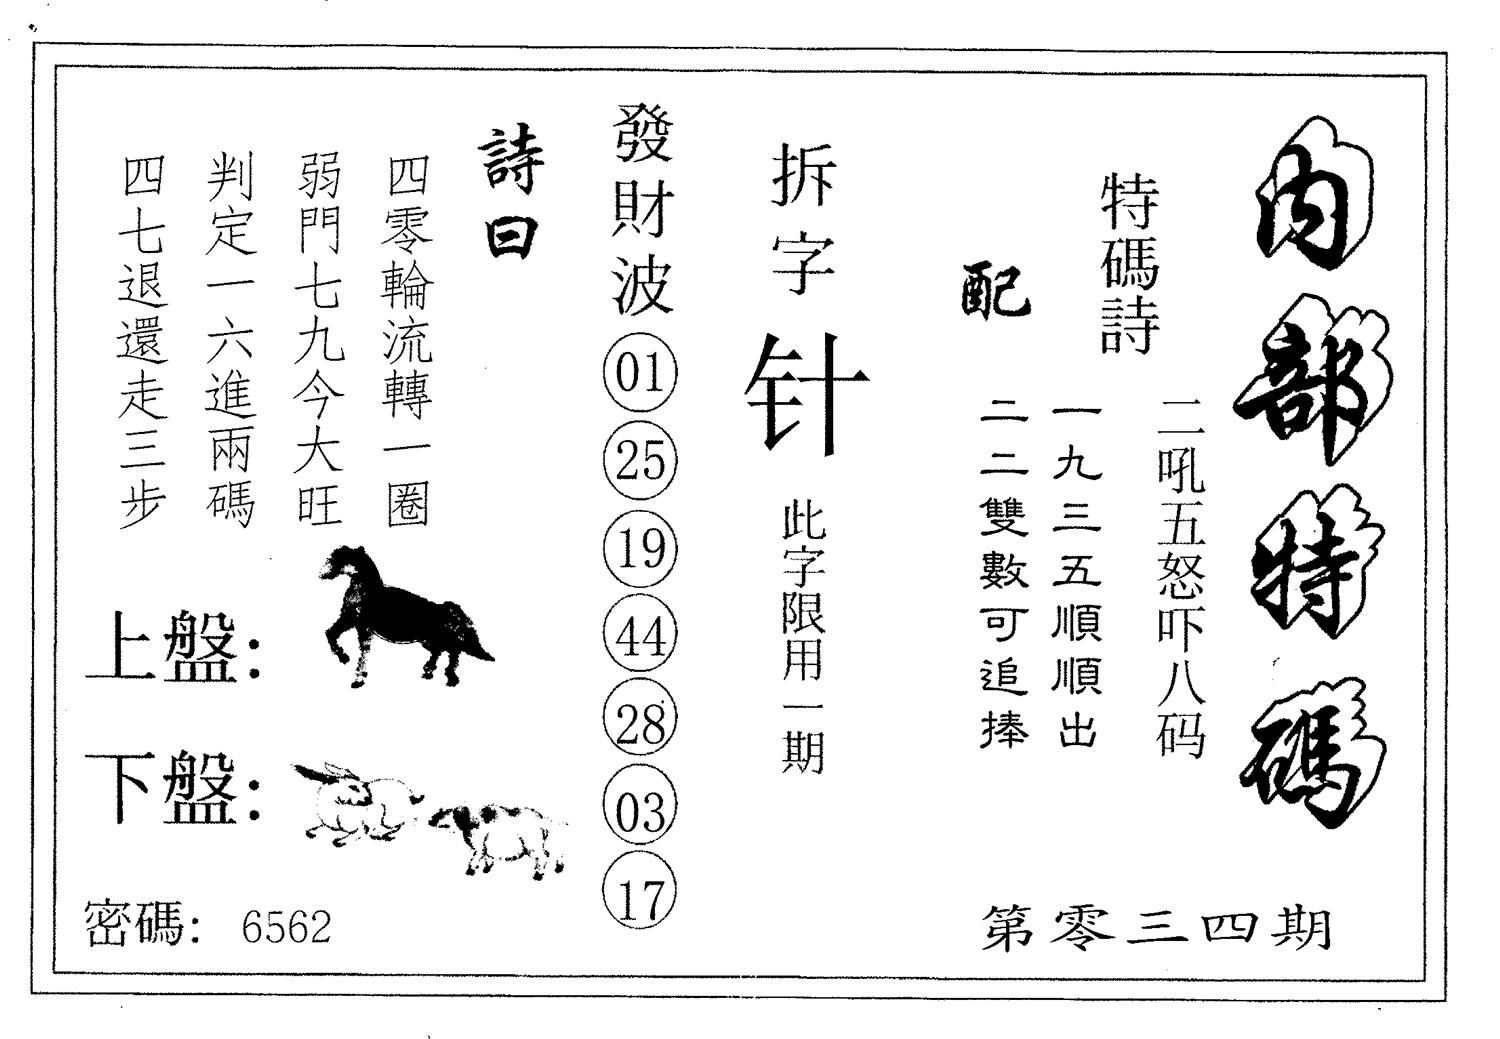 內部特碼
特碼詩
二吼五怒吓八码
配
一九三五順順出
二二雙數可追捧
第零三四期
拆字
针
此字限用一期
發財波
01
25
19
44
28
03
17
詩曰
四零輪流轉一圈
弱門七九今大旺
判定一六進兩碼
四七退還走三步
上盤：
下盤：
密碼：6562